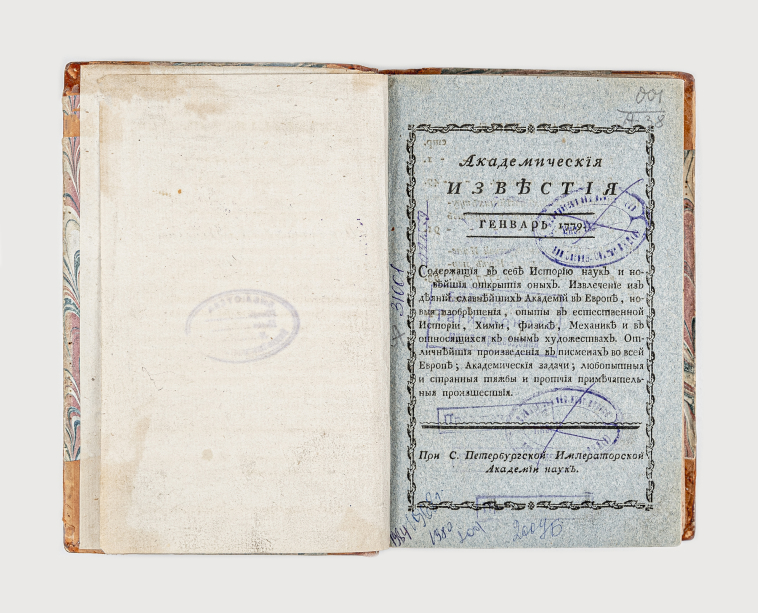 001
А-38
Академическія
ИЗВѢСТІЯ
ГЕНВАРЬ 1779.
Содержащія въ себѣ Исторію наукъ и но-
вѣйшія открытія оныхъ. Извлеченіе изъ
дѣяній славнѣйшихъ Академій въ Европѣ, но-
выя изобрѣтенія, опыты въ естественной
Исторіи, Химіи, Физикѣ, Механикѣ и въ
относящихся къ онымъ художествахъ. От-
личнѣйшія произведенія въ письменахъ во всей
Европѣ; Академическія задачи; любопытныя
и странныя тяжбы и протчія примѣчатель-
ныя произшествія.
При С. Петербургской Императорской
Академіи наукъ.
31001
1980